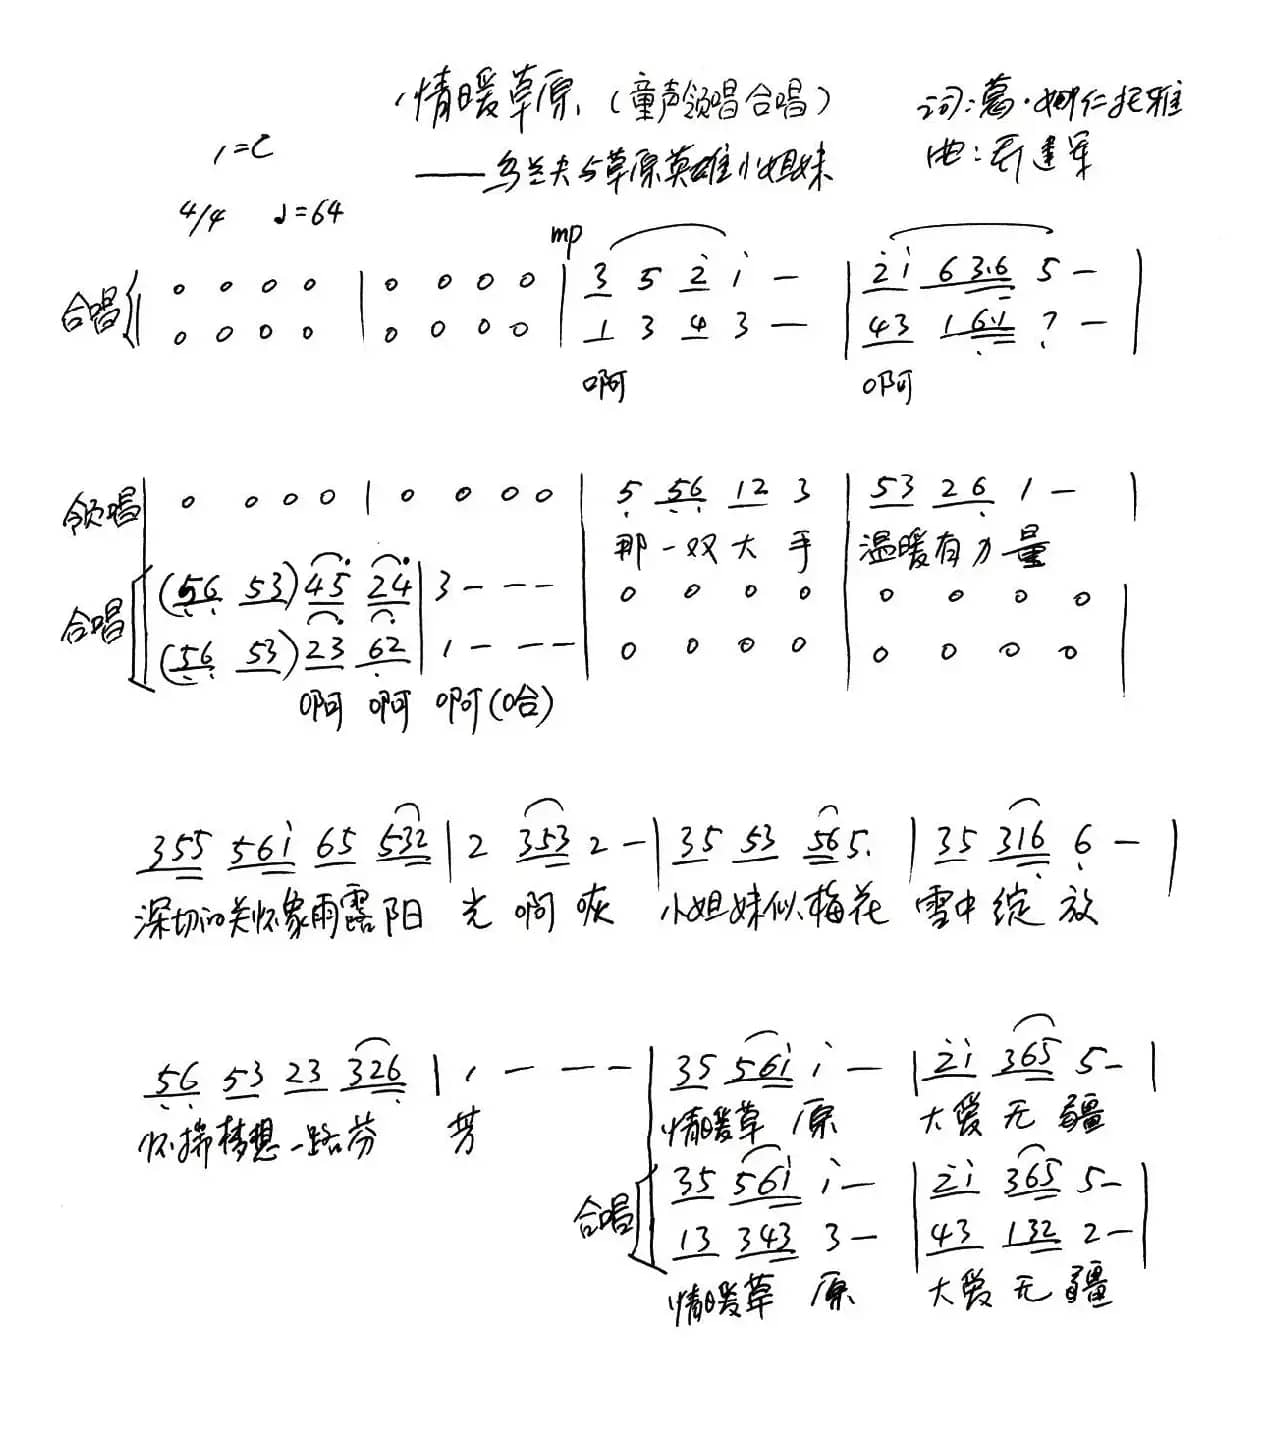 情暖草原 (童声领唱合唱) 词:葛·娜仁托雅
——乌兰夫与草原英雄小姐妹 曲: 建军
1=C
4/4 ♩=64
mp
合唱 0 0 0 0 | 0 0 0 0 | 3 5 2̇ i̇ — | 2̇ i̇ 6 3.6 5 — |
0 0 0 0 | 0 0 0 0 | 1 3 4 3 — | 4 3 1 6.1 7 — |
啊 啊
领唱 0 0 0 0 | 0 0 0 0 | 5 56 12 3 | 53 26 1 — |
那一双大手 温暖有力量
合唱 (56 53) 45 24 | 3 — — — | 0 0 0 0 | 0 0 0 0 |
(56 53) 23 62 | 1 — — — | 0 0 0 0 | 0 0 0 0 |
啊 啊 啊(哈)
355 56i̇ 65 532 | 2 353 2 — | 35 53 565. | 35 316 6 — |
深切的关怀象雨露阳 光 啊 咴 小姐妹似梅花 雪中绽 放
56 53 23 326 | 1 — — — | 35 56i̇ i̇ — | 2̇i̇ 365 5 — |
怀揣梦想一路芬 芳 情暖草 原 大爱无 疆
合唱 35 56i̇ i̇ — | 2̇i̇ 365 5 — |
13 343 3 — | 43 132 2 — |
情暖草 原 大爱无 疆